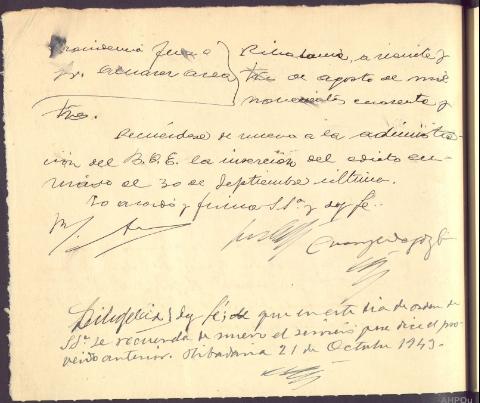 Providencia Juez a } Ribadavia, a veinte y
Sr. Alvarez Area } tres de agosto de mil
novecientos cuarenta y
tres.
Recuérdese de nuevo a la administra-
ción del B.O.E. la inserción del edicto en-
viado el 30 de Septiembre último.
Lo acordó y firma Sª. y doy fe.
M. A
Diligencia doy fé; de que en éste dia de orden de
Sª. se recuerda de nuevo el servicio que dice el pro-
veido anterior. Ribadavia 21 de Octubre 1943.
AHPOu